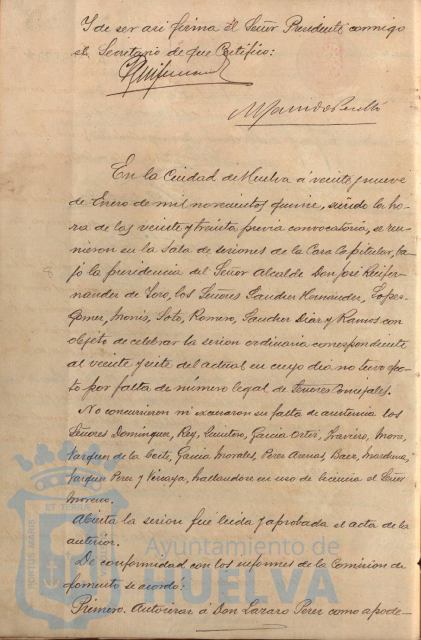 Y de ser así firma el Señor Presidente conmigo
el Secretario de que Certifico:
En la Ciudad de Huelva á veinte y nueve
de Enero de mil novecientos quince, siendo la ho-
ra de las veinte y treinta previa convocatoria, se reu-
nieron en la Sala de sesiones de la Casa Capitular, ba-
jo la presidencia del Señor Alcalde Don José
de Toro, los Señores Sanchez Hernandez, Lopez
Gomez, Soto, Romero, Sanchez Diaz y Ramos con
objeto de celebrar la sesion ordinaria correspondiente
al veinte y siete del actual en cuyo dia no tuvo efec-
to por falta de número legal de Señores Concejales.
No concurrieron ni excusaron su falta de asistencia los
Señores Dominguez, Rey, Quintero, Garcia Ortiz, Mora,
Vazquez de la Corte, Garcia Morales, Perez Arenas, Baez,
Vazquez Perez y hallandose en uso de licencia el Señor
Moreno.
Abierta la sesion fue leida y aprobada el acta de la
anterior.
De conformidad con los informes de la Comision de
fomento se acordó:
Primero. Autorizar á Don Lazaro Perez como apode-
Ayuntamiento de
HUELVA